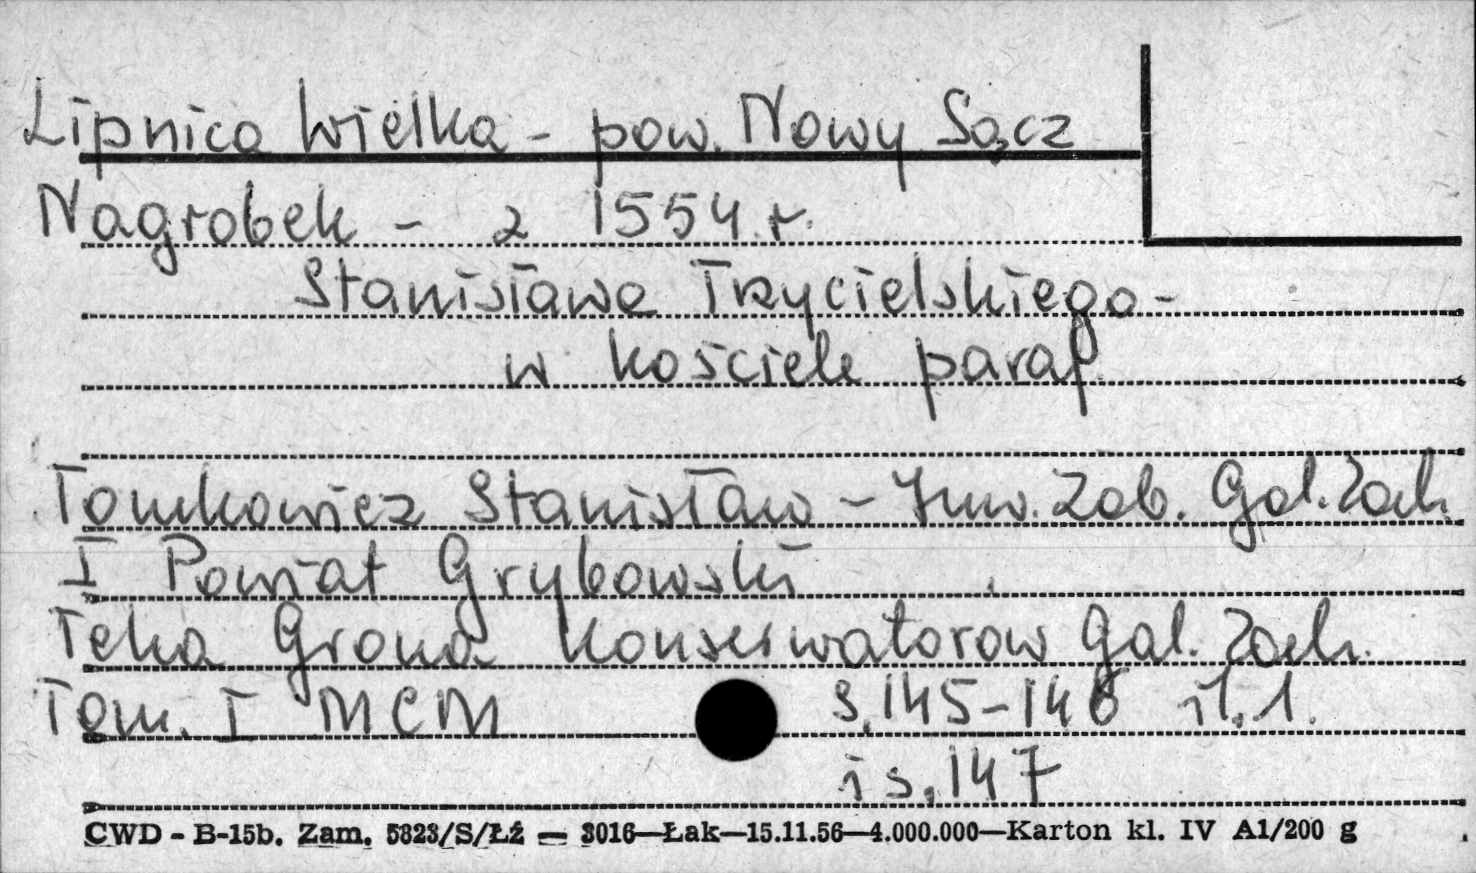 Lipnica Wielka - pow. Nowy Sącz
Nagrobek - z 1554 r.
Stanisława Trzycielskiego -
w kościele paraf.
Tomkowicz Stanisław - Inw. Zab. Gal. Zach.
I Powiat Grybowski
Teka Grona Konserwatorow Gal. Zach.
Tom. I MCM s. 145-146 il. 1.
i s. 147
CWD - B-15b. Zam. 5823/S/Łź — 3016—Łak—15.11.56—4.000.000—Karton kl. IV A1/200 g